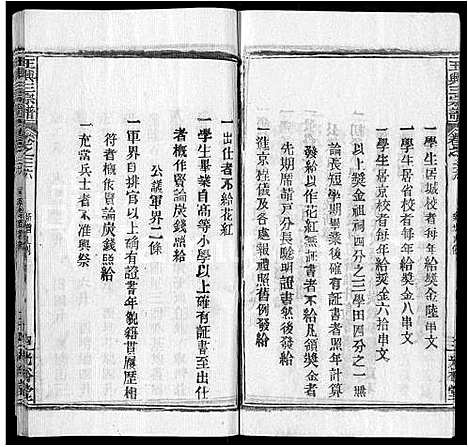 王興三宗譜
一學生居城校者每年給奬金陸串文
一學生居省校者每年給奬金八串文
一學生居京校者每年給奬金六拾串文
一以上奬金祖祠四分之三學田四分之一無
論長短學期畢業後確有証書者照年計算
發給以作花紅無証書者不給凡領奬金者
先期席請戸分長驗明證書然後發給
一進京程儀及各處報禮照舊例發給
一出仕者不給花紅
一學生畢業自高等小學以上確有証書至出仕
者概作賀論炭錢照給
公議軍界二條
一軍界自排官以上確有證書年貌籍貫履歷相
符者概作賀論炭錢照給
一充當兵士者不准與祭
王興三宗譜